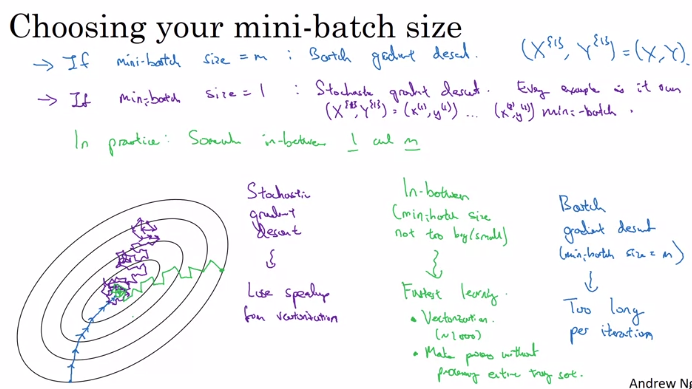 Choosing your mini-batch size
→ If mini-batch size = m : Batch gradient descent. (X^{1}, Y^{1}) = (X, Y).
→ If mini-batch size = 1 : Stochastic gradient descent. Every example is it own
(X^{1}, Y^{1}) = (x^(1), y^(1)) ... mini-batch.
In practice: in-between 1 and m
Stochastic
gradient
descent
Lose speedup
from vectorization
In-between
(mini-batch size
not too big/small)
Fastest learning.
• Vectorization.
(~1000)
• Make progress without
processing entire training set.
Batch
gradient descent
(mini-batch size = m)
Too long
per iteration
Andrew Ng